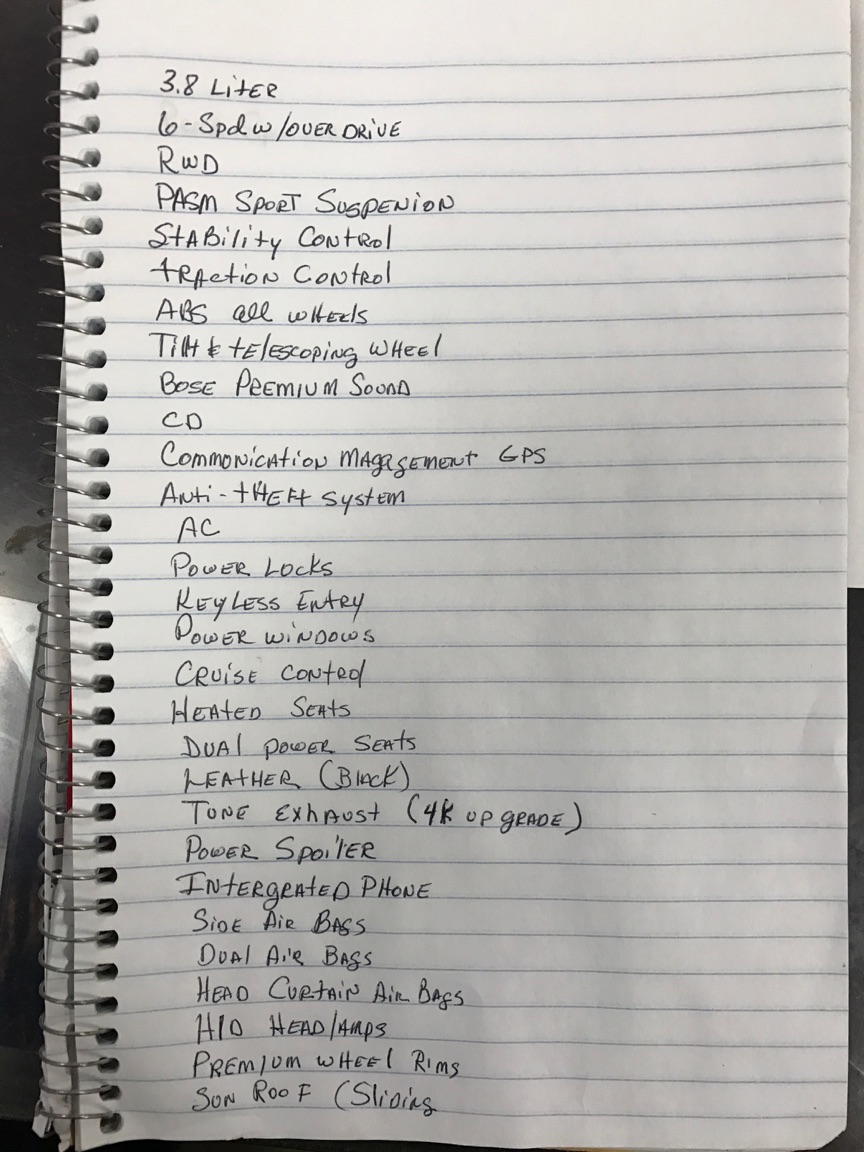 3.8 LiTER
6-Spd w/OVER DRiVE
RWD
PASM SPORT SUSPENiON
StABility CONtROl
tRACtiON CONtROl
ABS all wHEEls
Tilt & tElEscoping WHEEl
BOSE PREMIUM SOUND
CD
COMMUNiCAtiON MAGAGEMENT GPS
ANti-tHEFt SYSTEM
AC
POWER LOCKS
KEYLESS ENtRY
POWER WiNDOWS
CRUiSE CONtROl
HEATED SEAtS
DUAl POWER SEAtS
LEATHER (BlACK)
TUNE EXhAUSt (4K UPGRADE)
POWER SPOilER
INTERGRATED PHONE
SiDE AiR BAGS
DUAl AiR BAGS
HEAD CURTAiN AiR BAGS
HID HEADlAMPS
PREMIUM WHEEl RiMS
SUN ROOF (SliDiNg